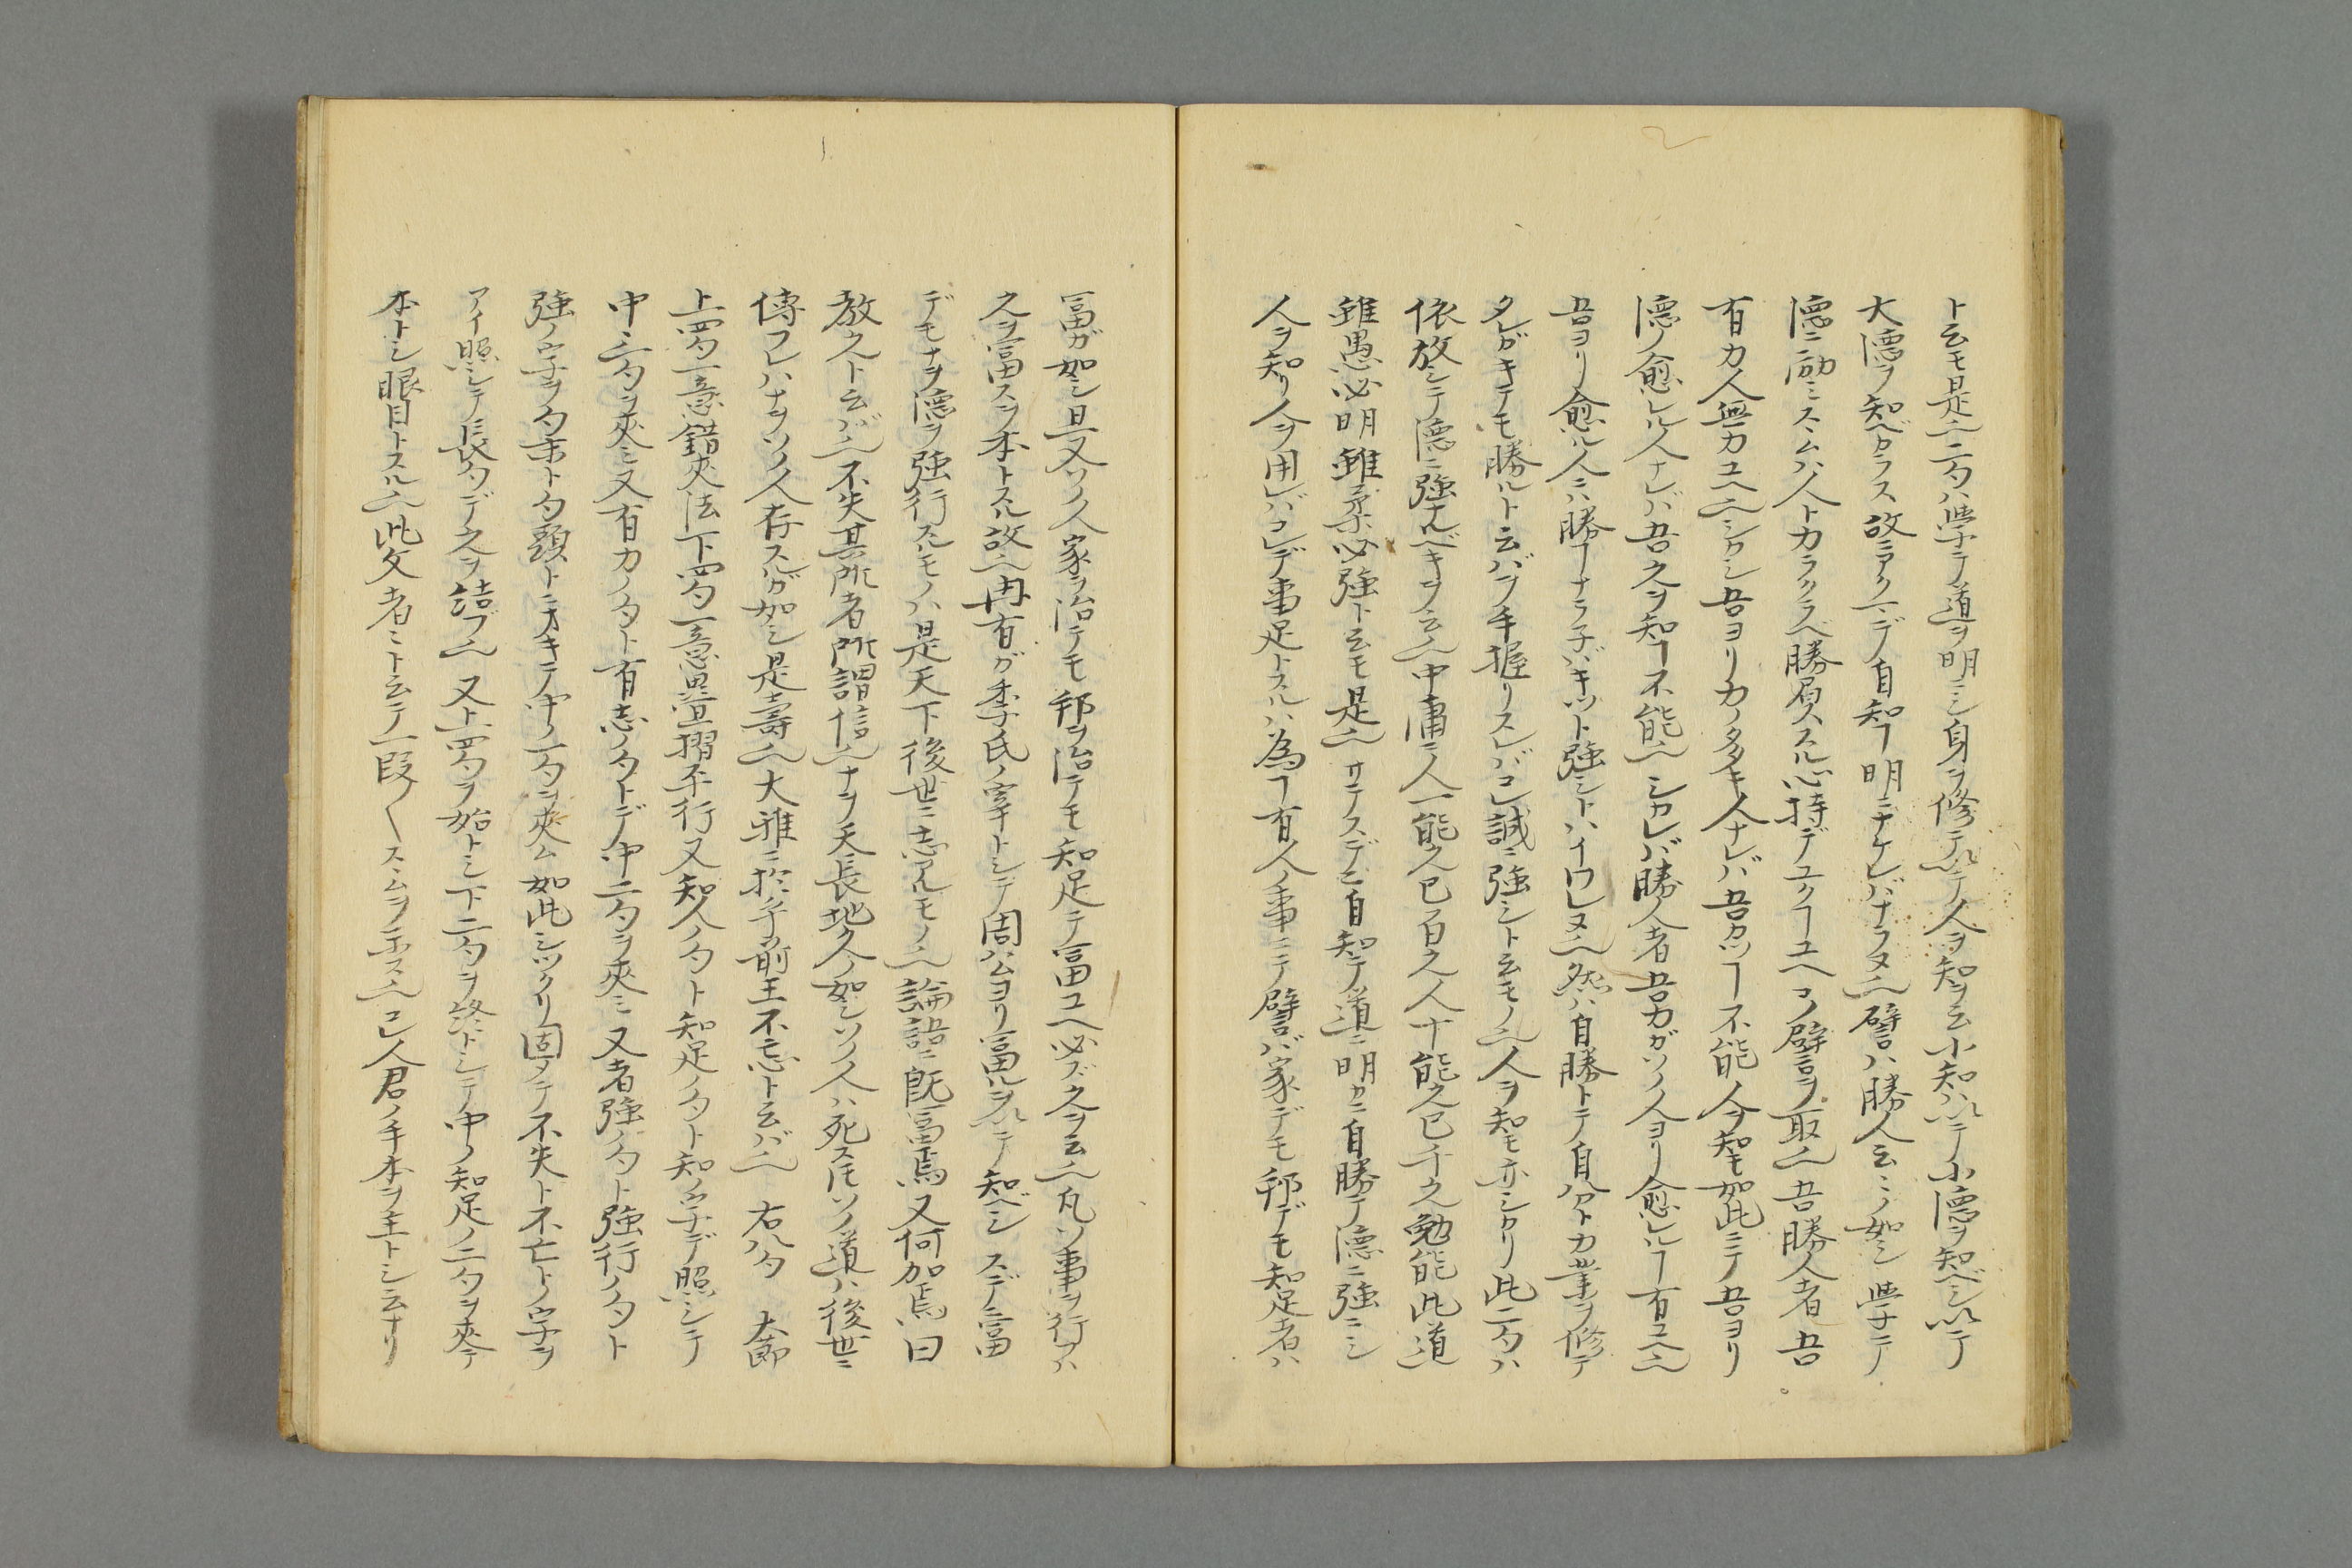 ト云モ是也二句ハ學テ道ヲ明ニシ身ヲ修テ以テ人ヲ知ヲ云小知ハ以テ小德ヲ知ベシ以テ
大德ヲ知ベカラス故ニアクマデ自知ヿ明ニナケレバナラヌ也譬ハ勝人云々ノ如シ學テ
德ニ励ミスヽムハ人ト力ラクラベ勝屓スル心持デユクヿユヘコノ譬ヲ取也吾勝人者吾
有力人無力ユヘ也シカシ吾ヨリ力ノ多キ人ナレバ吾カツヿ不能人ヲ知モ如此ニテ吾ヨリ
德ノ愈レル人ナレバ吾之ヲ知ヿ不能也シカレバ勝人者吾力ガソノ人ヨリ愈レルヿ有ユヘ也
吾ヨリ愈ル人ニハ勝ヿナラ子バキット強シトハイワレヌ也然ハ自勝トテ自分ト力業ヲ修テ
タレガキテモ勝ルト云バヲ手握リスレバコレ誠ニ強シト云モノ也人ヲ知モ亦シカリ此二句ハ
依放シテ德ニ強ナルベキヲ云也中庸ニ人一能之己百之人十能之己千之勉能此道
雖愚必明雖柔必強ト云モ是也サテスデニ自知テ道ニ明カニ自勝テ德ニ強ニシ
人ヲ知リ人ヲ用レバコレデ事足トスルハ為ヿ有人ノ事ニテ譬バ家デモ邦デモ知足者ハ
富ガ如シ且又ソノ人家ヲ治テモ邦ヲ治テモ知足テ富ユヘ必ズ之ヲ云也凡ソ事ヲ行フハ
之ヲ富スヲ本トスル故也冉有ガ季氏ノ宰トシテ周公ヨリ富ルヲ以テ知ベシスデニ富
デモナヲ德ヲ強行スルモノハ是天下後世ニ志アルモノ也論語ニ既富焉又何加焉曰
教之ト云バ也不失其所者所謂信也ナヲ天長地久ノ如シソノ人ハ死スルモソノ道ハ後世ニ
傳フレハナヲソノ人存スルガ如シ是壽也大雅ニ於乎前王不忘ト云バ也　右八句　大節
上四句一意錯夾法下四句一意畳摺平行又知人ノ句ト知足ノ句ト知ノ字デ照シテ
中ニ二句ヲ夾ミ又有力ノ句ト有志ノ句トデ中二句ヲ夾ミ又者強ノ句ト強行ノ句ト
強ノ字ヲ句末ト句頭トニオキテ中ノ一句ヲ夾ム如此シックリ固メテ不失ト不亡トノ字ヲ
アイ照シテ長句デ之ヲ結ブ也又上四句ヲ始トシ下二句ヲ終トシテ中ノ知足ノ二句ヲ夾テ
本トシ眼目トスル也此文者ミト云テ一段〱スヽムヲ示ス也コレ人君ノ手本ヲ主トシ云ナリ